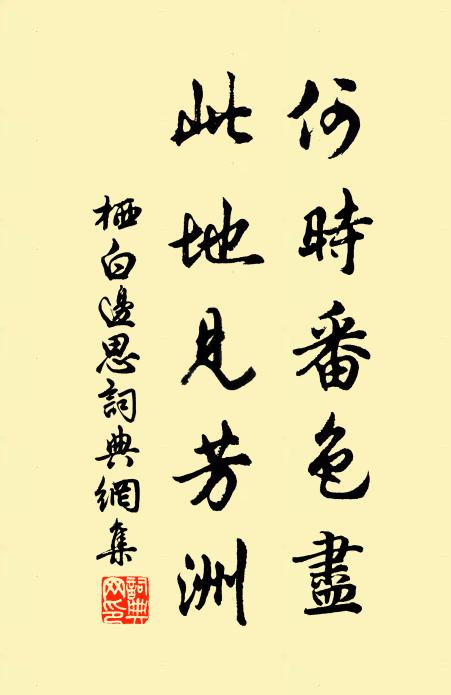 何時番色盡
此地見芳洲
栖白邊思詞典網集
詞典網印